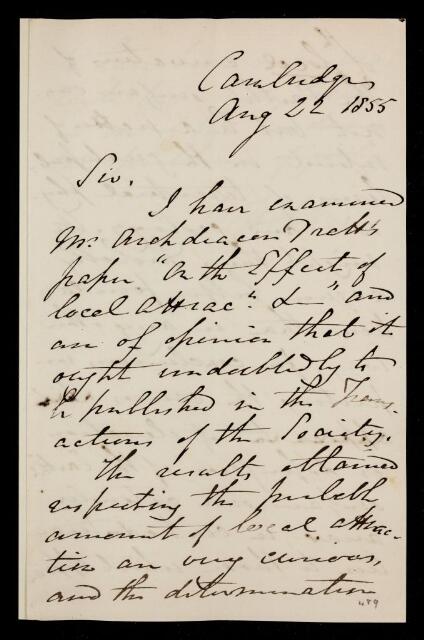 Cambridge
Aug 22 1855
Sir.
I have examined
Mr Archdeacon Pratt's
paper "On the Effect of
local Attracn. &c" and
am of opinion that it
ought undoubtedly to
be published in the Trans-
actions of the Society.
The results obtained
respecting the probable
amount of local attrac-
tion are very curious,
and the determination
489